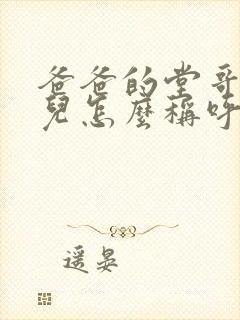 爸爸的堂哥
兒怎麼稱呼
遥晏